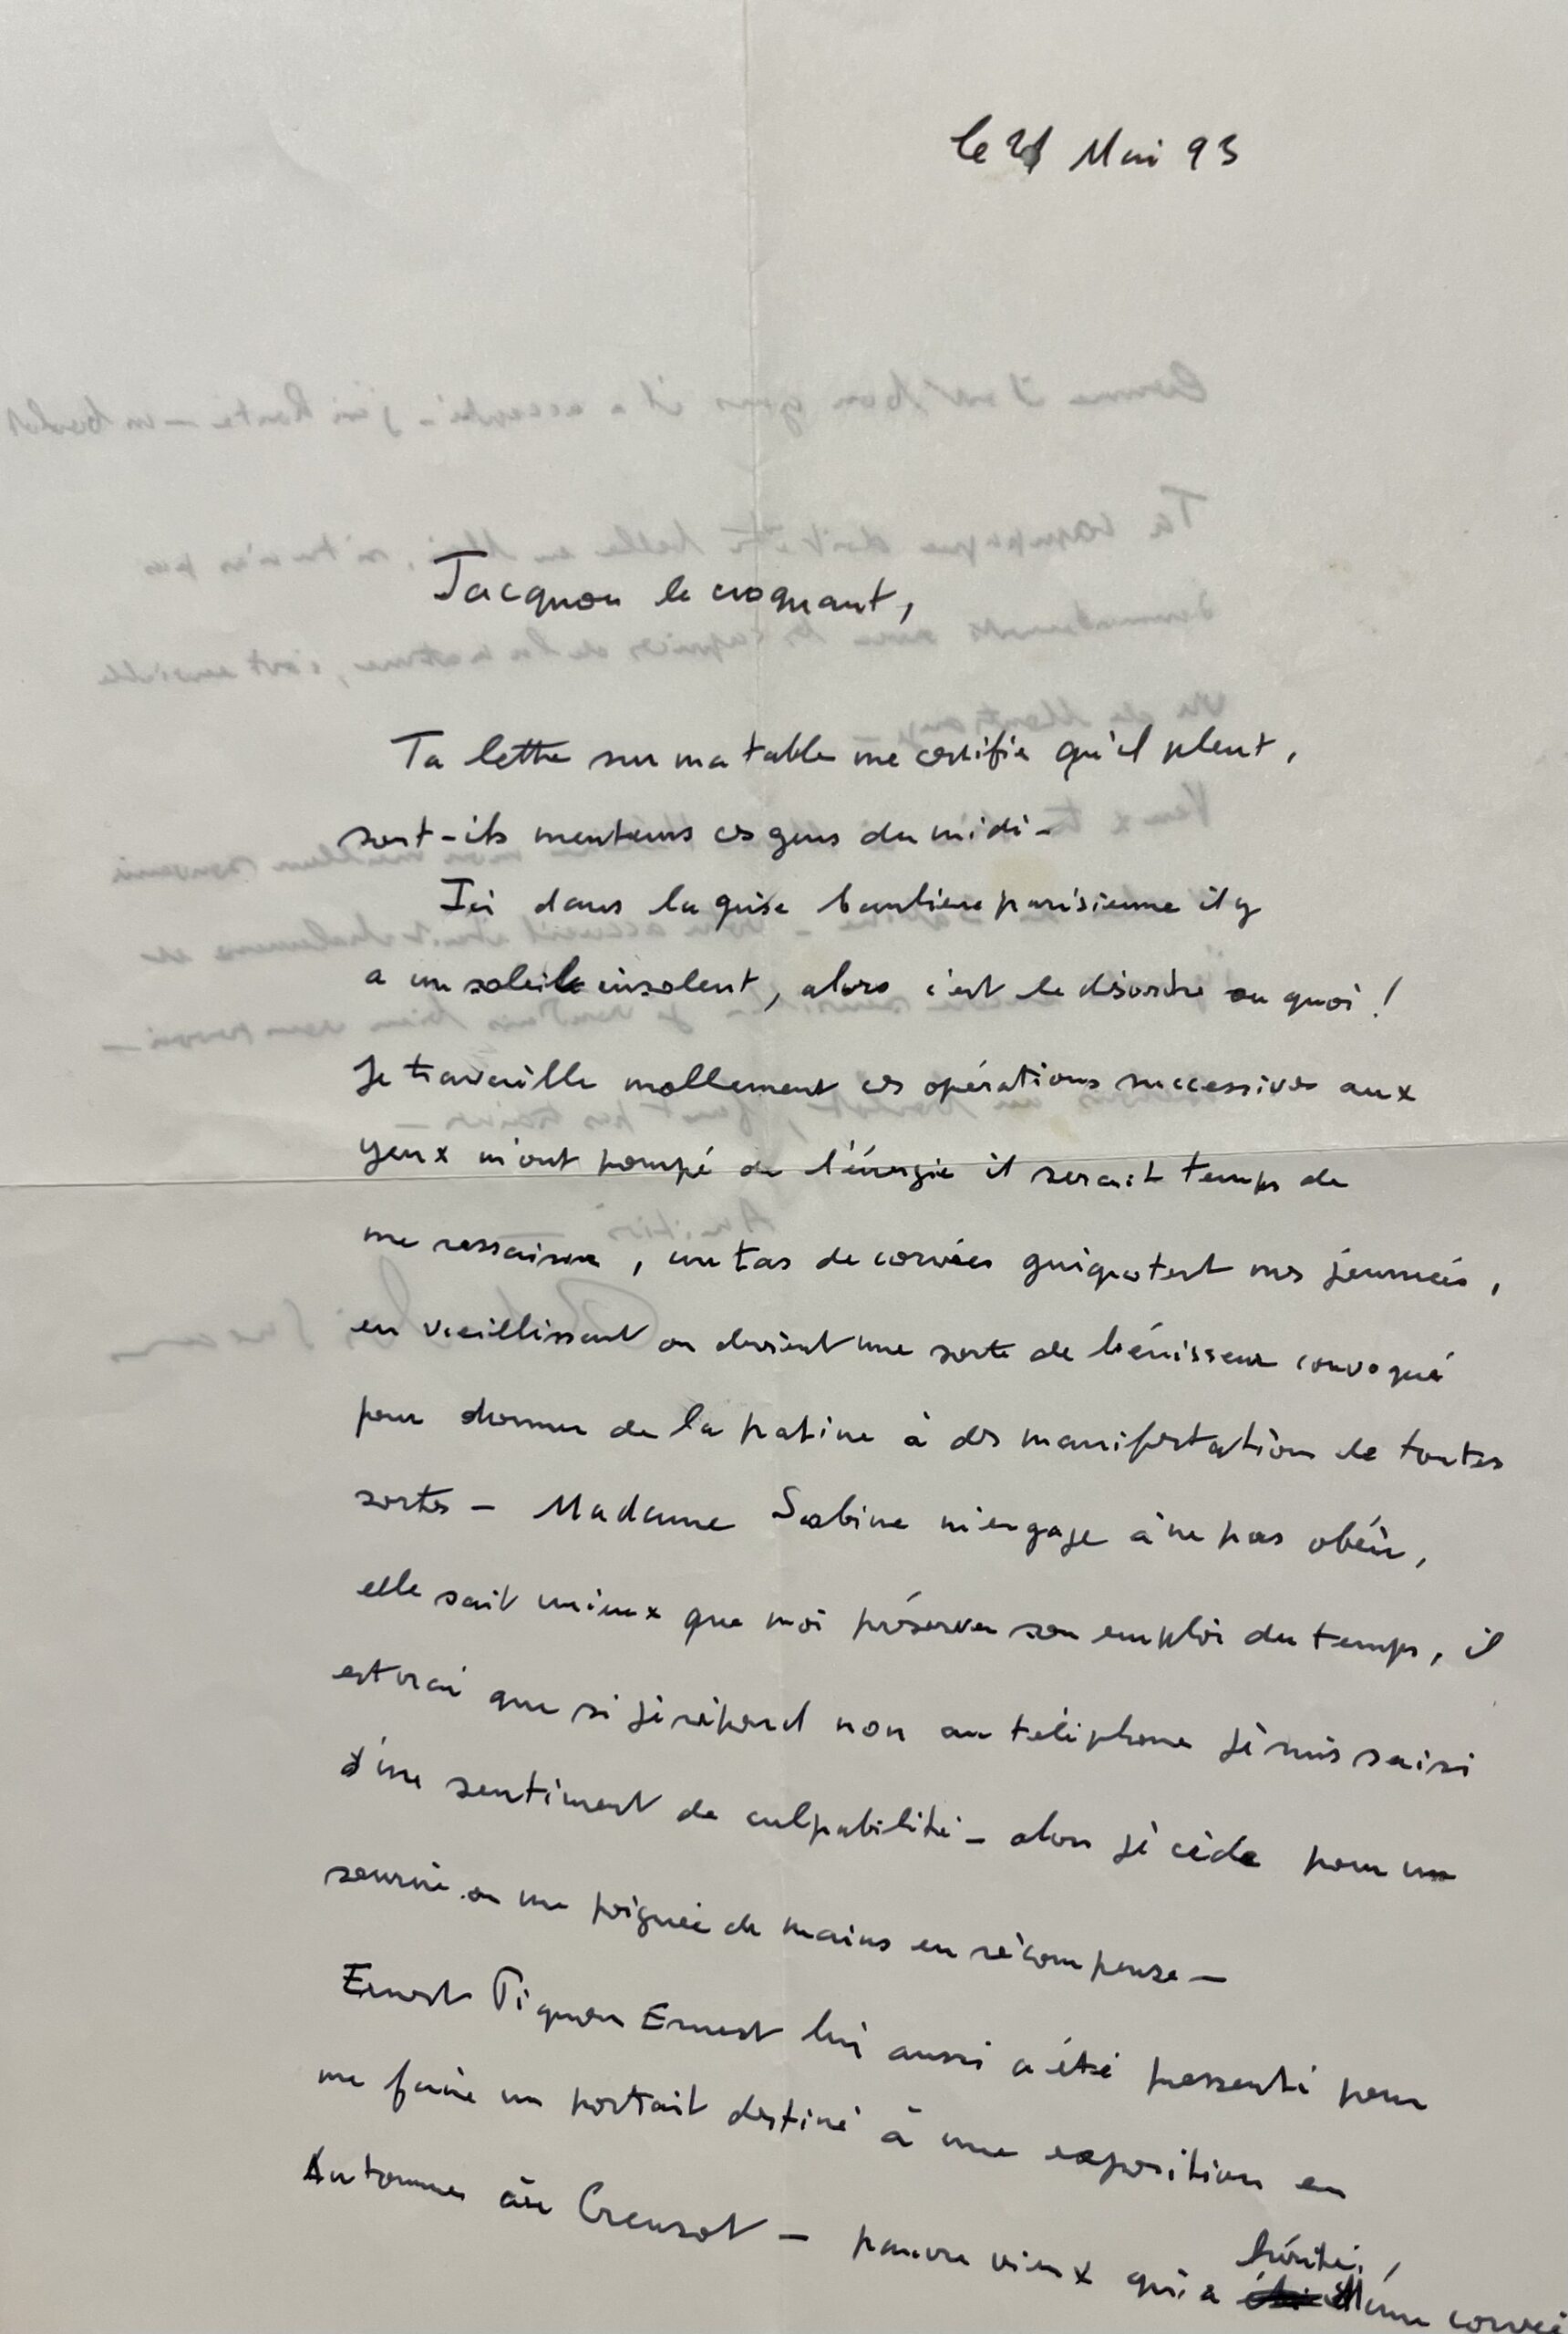 le 21 Mai 93
Jacquou le croquant,
Ta lettre sur ma table me certifie qu'il pleut,
sont-ils menteurs ces gens du midi -
Ici dans la grise banlieue parisienne il y
a un soleil insolent, alors c'est le désordre ou quoi !
Je travaille mollement ces opérations successives aux
yeux m'ont pompé de l'énergie il serait temps de
me ressaisir, un tas de corvées grignotent mes journées,
en vieillissant on devient une sorte de bénisseur convoqué
pour donner de la patine à des manifestations de toutes
sortes - Madame Sabine m'engage à ne pas obéir,
elle sait mieux que moi préserver son emploi du temps, il
est vrai que si je répond non au téléphone je suis saisi
d'un sentiment de culpabilité - alors je cède pour un
sourire ou une poignée de mains en récompense -
Ernest Pignon Ernest lui aussi a été pressenti pour
me faire un portrait destiné à une exposition en
Automne au Creusot - pauvre vieux qui a hérité
d'une corvée